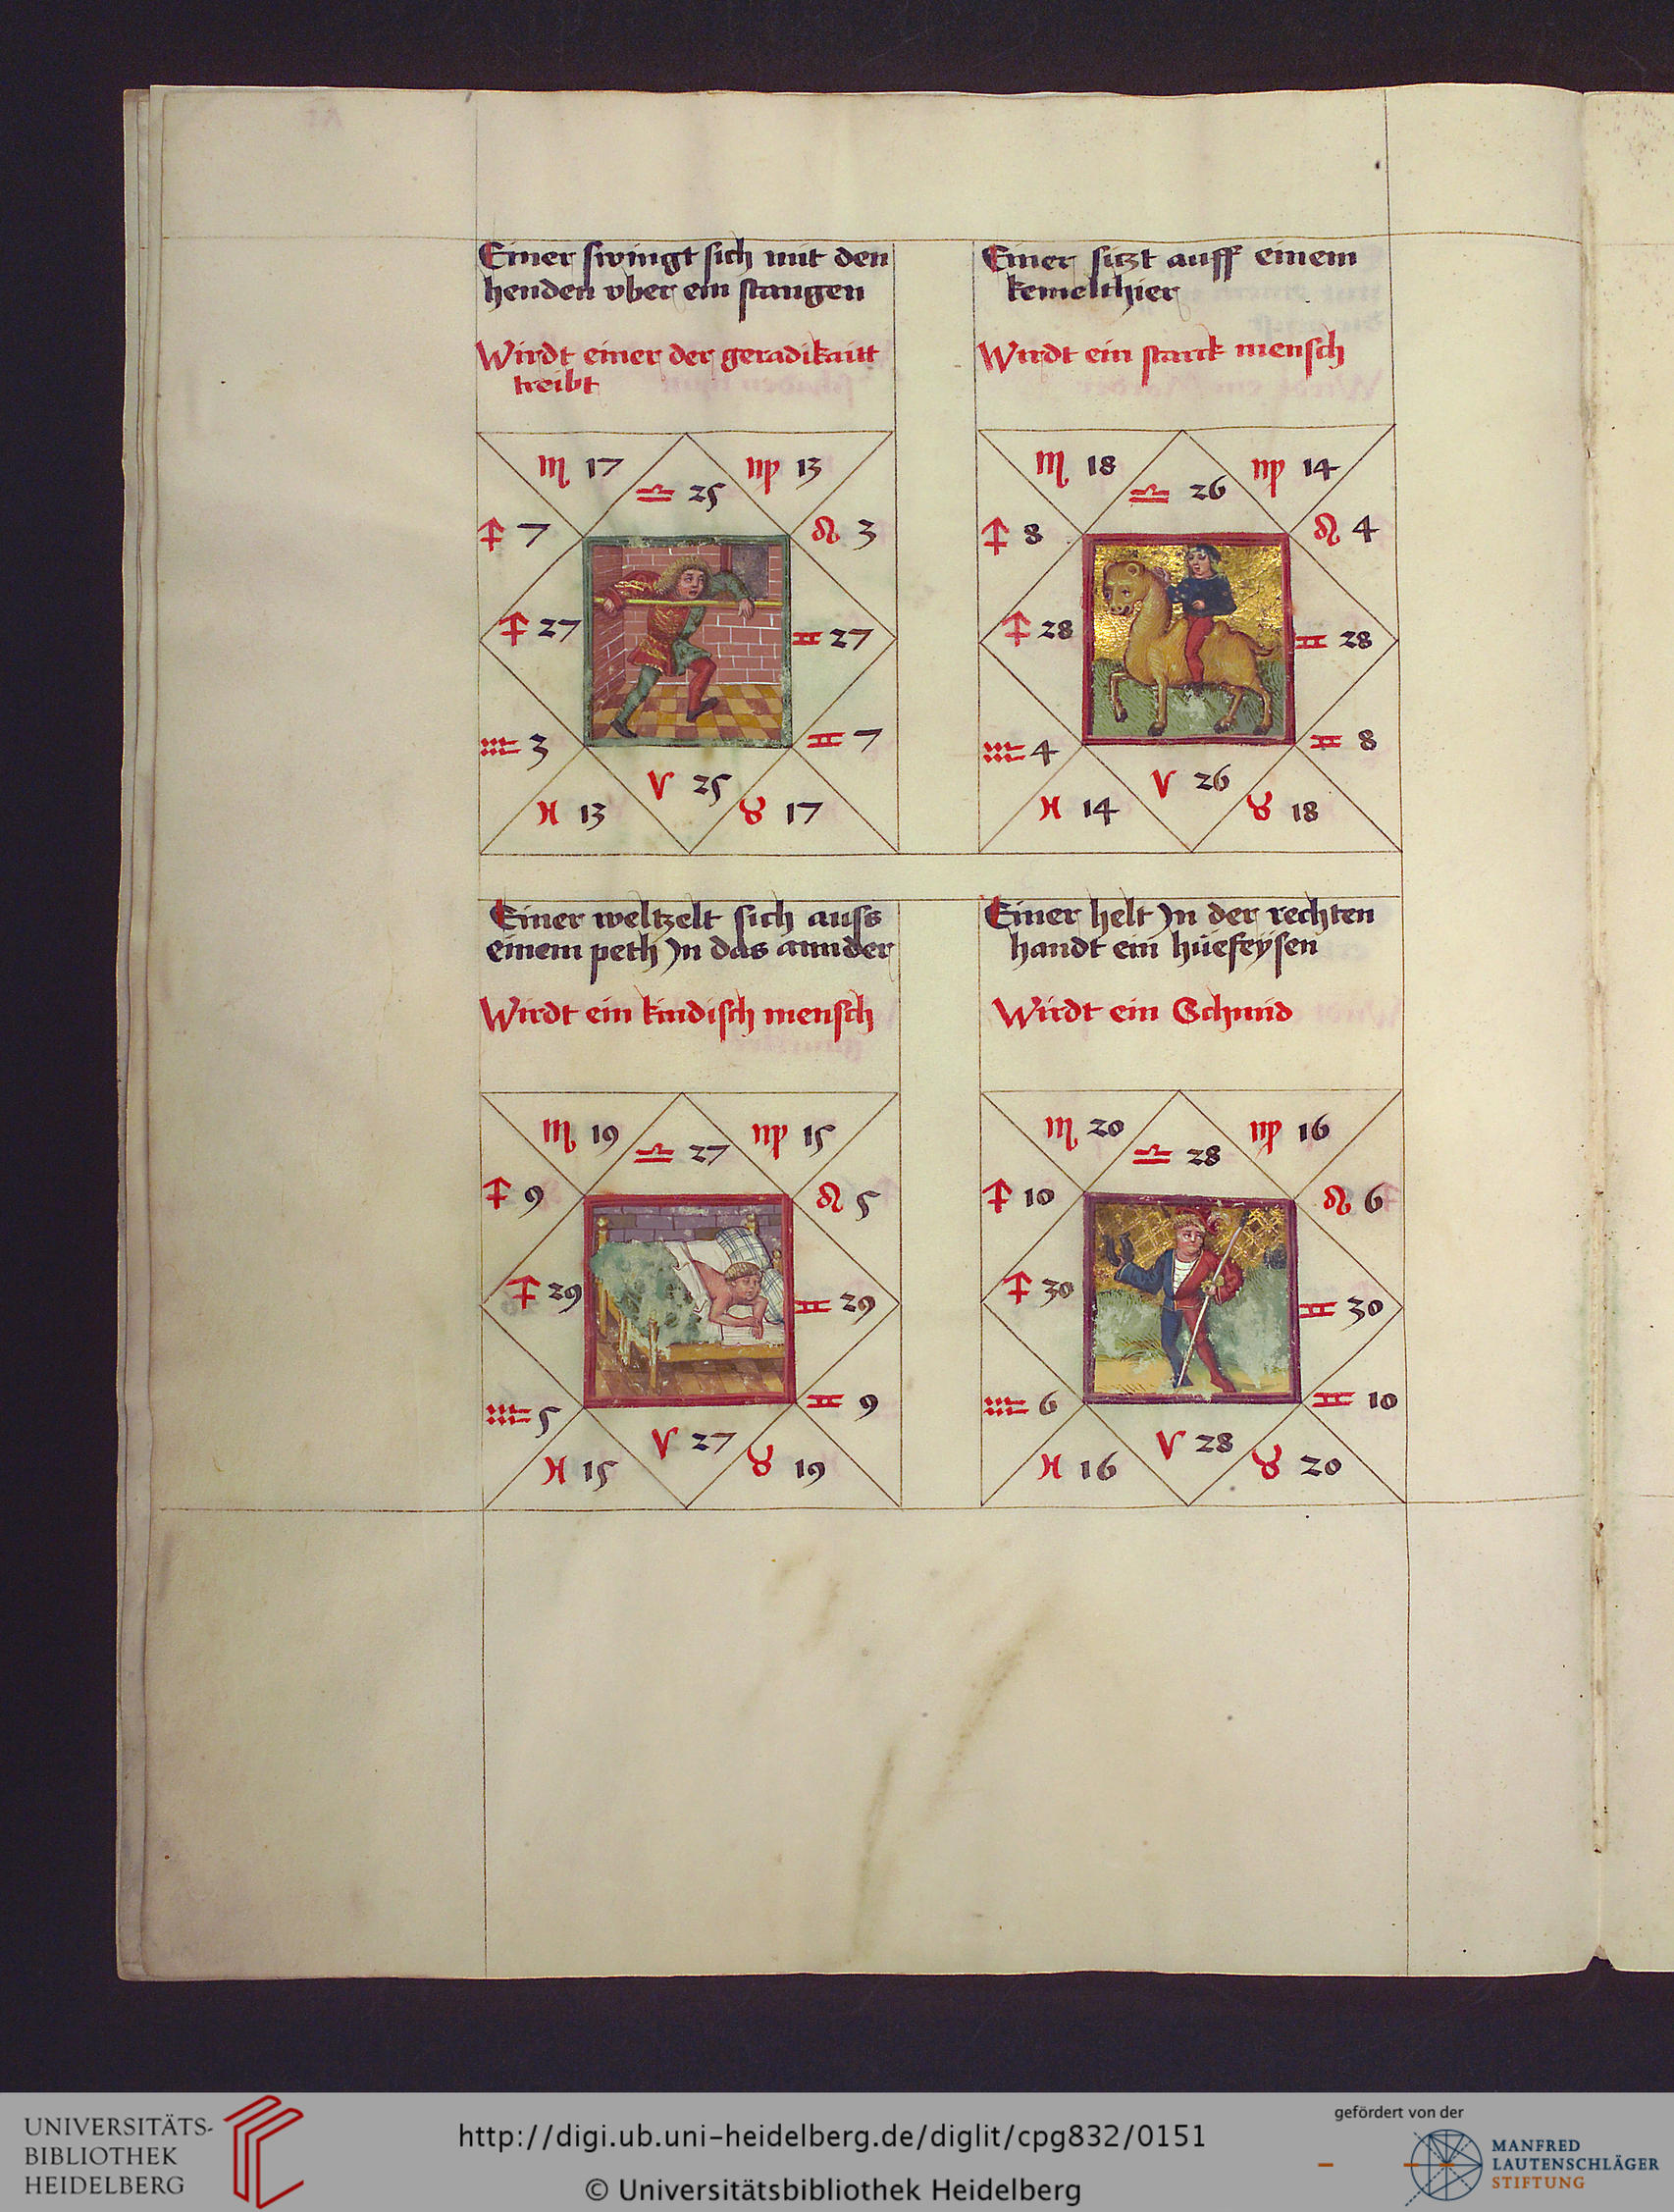 Einer swingt sich mit den
henden vber ein stangen
Wirdt einer der geradikaitt
treibt
♏ 17
♎ 25
♍ 13
♐ 7
♌ 3
♐ 27
♊ 27
♒ 3
♊ 7
♈ 25
♓ 13
♉ 17
Einer sitzt auff einem
kemelthier
Wirdt ein starck mensch
♏ 18
♎ 26
♍ 14
♐ 8
♌ 4
♐ 28
♊ 28
♒ 4
♊ 8
♈ 26
♓ 14
♉ 18
Einer weltzelt sich auss
einem peth Jn das annder
Wirdt ein kindisch mensch
♏ 19
♎ 27
♍ 15
♐ 9
♌ 5
♐ 29
♊ 29
♒ 5
♊ 9
♈ 27
♓ 15
♉ 19
Einer helt Jn der rechten
handt ein hüefeysen
Wirdt ein Schmid
♏ 20
♎ 28
♍ 16
♐ 10
♌ 6
♐ 30
♊ 30
♒ 6
♊ 10
♈ 28
♓ 16
♉ 20
UNIVERSITÄTS-
BIBLIOTHEK
HEIDELBERG
http://digi.ub.uni-heidelberg.de/diglit/cpg832/0151
© Universitätsbibliothek Heidelberg
gefördert von der
MANFRED
LAUTENSCHLÄGER
STIFTUNG